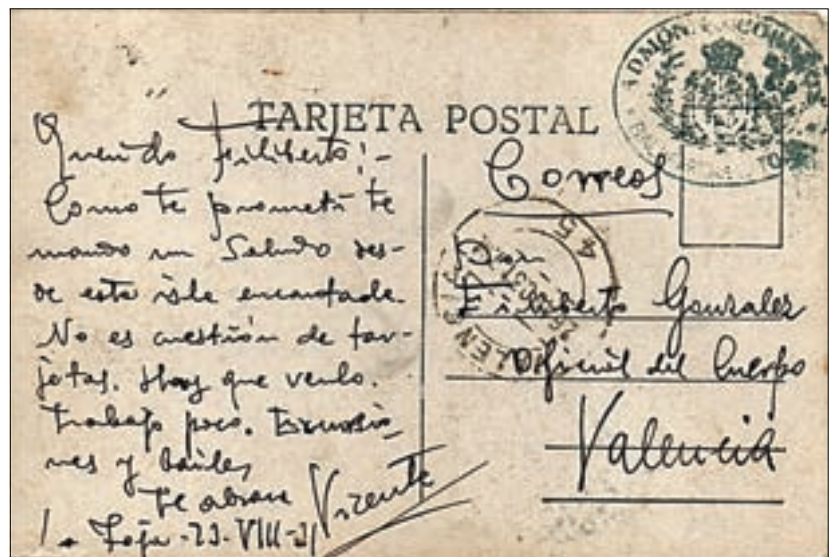 TARJETA POSTAL
Querido Filiberto:-
Como te prometí te
mando un Saludo des-
de esta isla encantada.
No es cuestión de tar-
jetas. Hay que verlo.
Trabajo poco. Excursio-
nes y bailes
te abraza Vicente
La Toja-23-VIII-31
Correos
Don
Filiberto Gonzalez
Oficial del Cuerpo
Valencia
ADMON. CORREOS
45